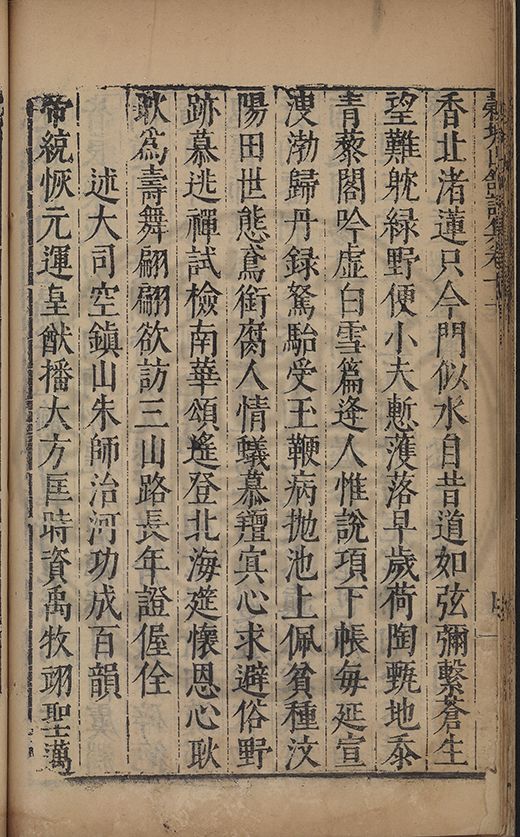 穀城山館詩集卷十
香北渚蓮只今門似水自昔道如弦彌繫蒼生
望難躭綠野便小夫慙濩落早歲荷陶甄地忝
青藜閣吟虛白雪篇逢人惟說項下帳每延宣
溲渤歸丹錄駑駘受玉鞭病拋池上佩貧種汶
陽田世態鳶銜腐人情蟻慕羶冥心求避俗野
跡慕逃禪試檢南華頌遙登北海筵懷恩心耿
耿爲壽舞翩翩欲訪三山路長年證偓佺
述大司空鎮山朱師治河功成百韻
帝統恢元運皇猷播大方匡時資禹牧翊聖邁